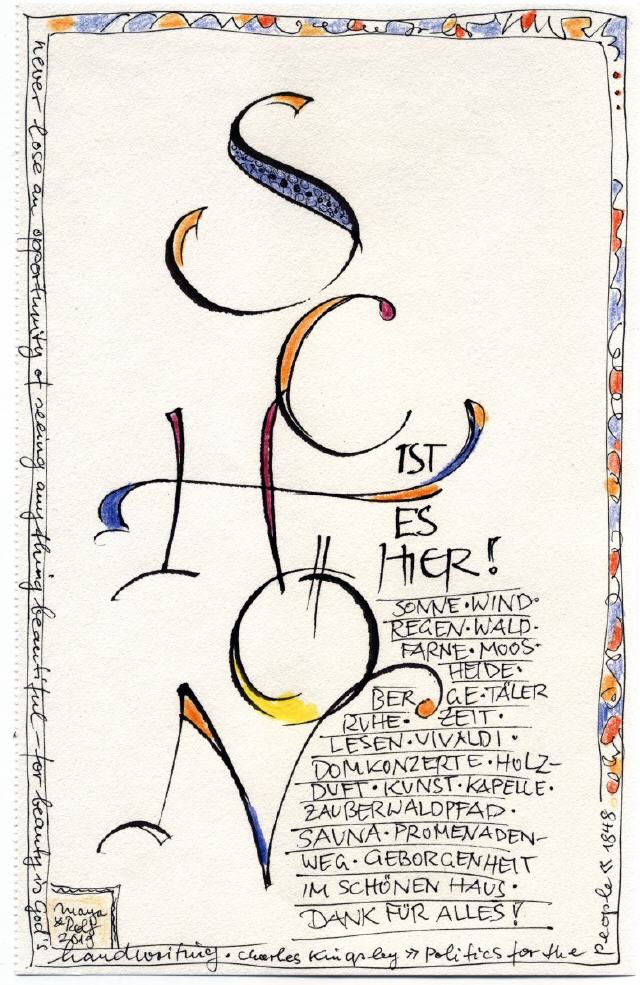 SCHÖN
IST
ES
HIER!
SONNE·WIND·
REGEN·WALD·
FARNE·MOOS·
HEIDE·
BERGE·TÄLER
RUHE·ZEIT·
LESEN·VIVALDI·
DOMKONZERTE·HOLZ-
DUFT·KUNST·KAPELLE·
ZAUBERWALDPFAD·
SAUNA·PROMENADEN-
WEG·GEBORGENHEIT
IM SCHÖNEN HAUS·
DANK FÜR ALLES!
never lose an opportunity of seeing anything beautiful – for beauty is God's
handwriting · Charles Kingsley » Politics for the
People « 1848
maya
& Rolf
2019